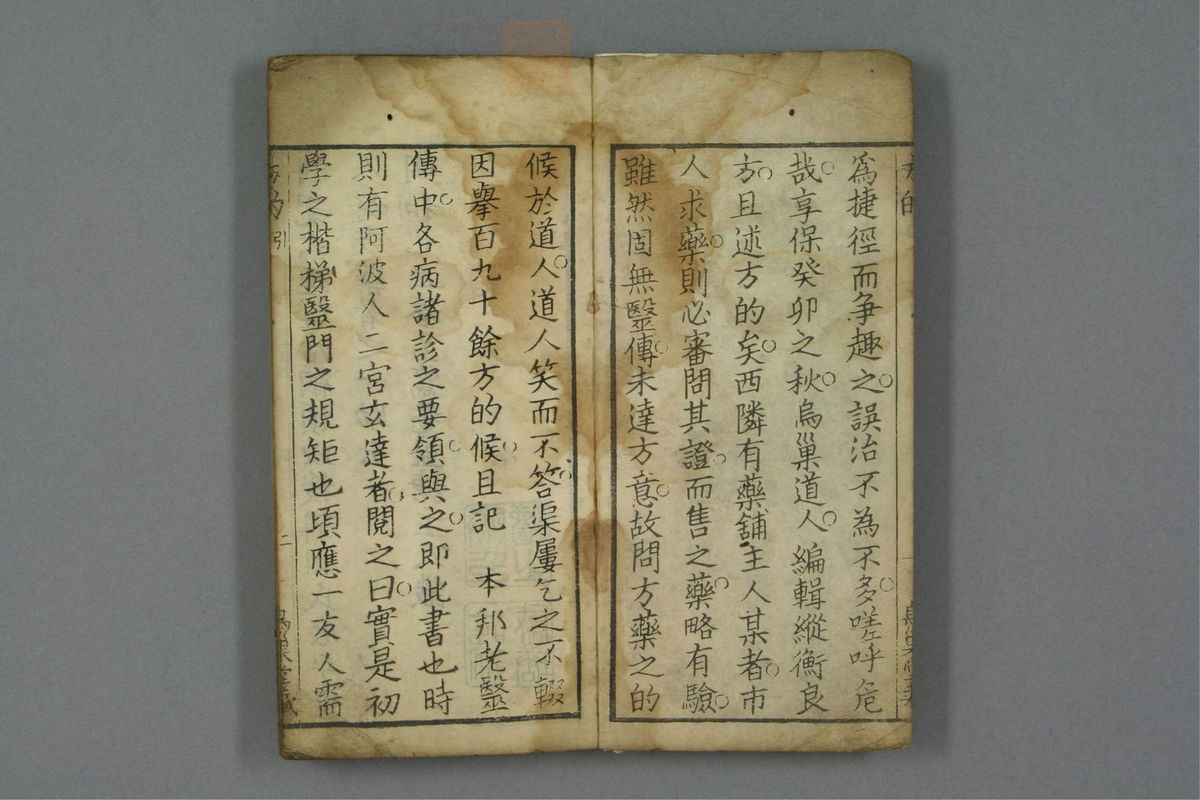 爲捷徑而争趣之誤治不為不多嗟呼危
哉享保癸卯之秋烏巢道人編輯縱衡良
方且述方的矣西隣有藥舖主人某者市
人求藥則必審問其證而售之藥略有驗
雖然固無毉傳未達方意故問方藥之的
候於道人道人笑而不答渠屢乞之不輟
因擧百九十餘方的候且記 本邦老毉
傳中各病諸診之要領與之即此書也時
則有阿波人二宮玄達者閱之曰實是初
學之楷梯毉門之規矩也頃應一友人需
方的 引
二